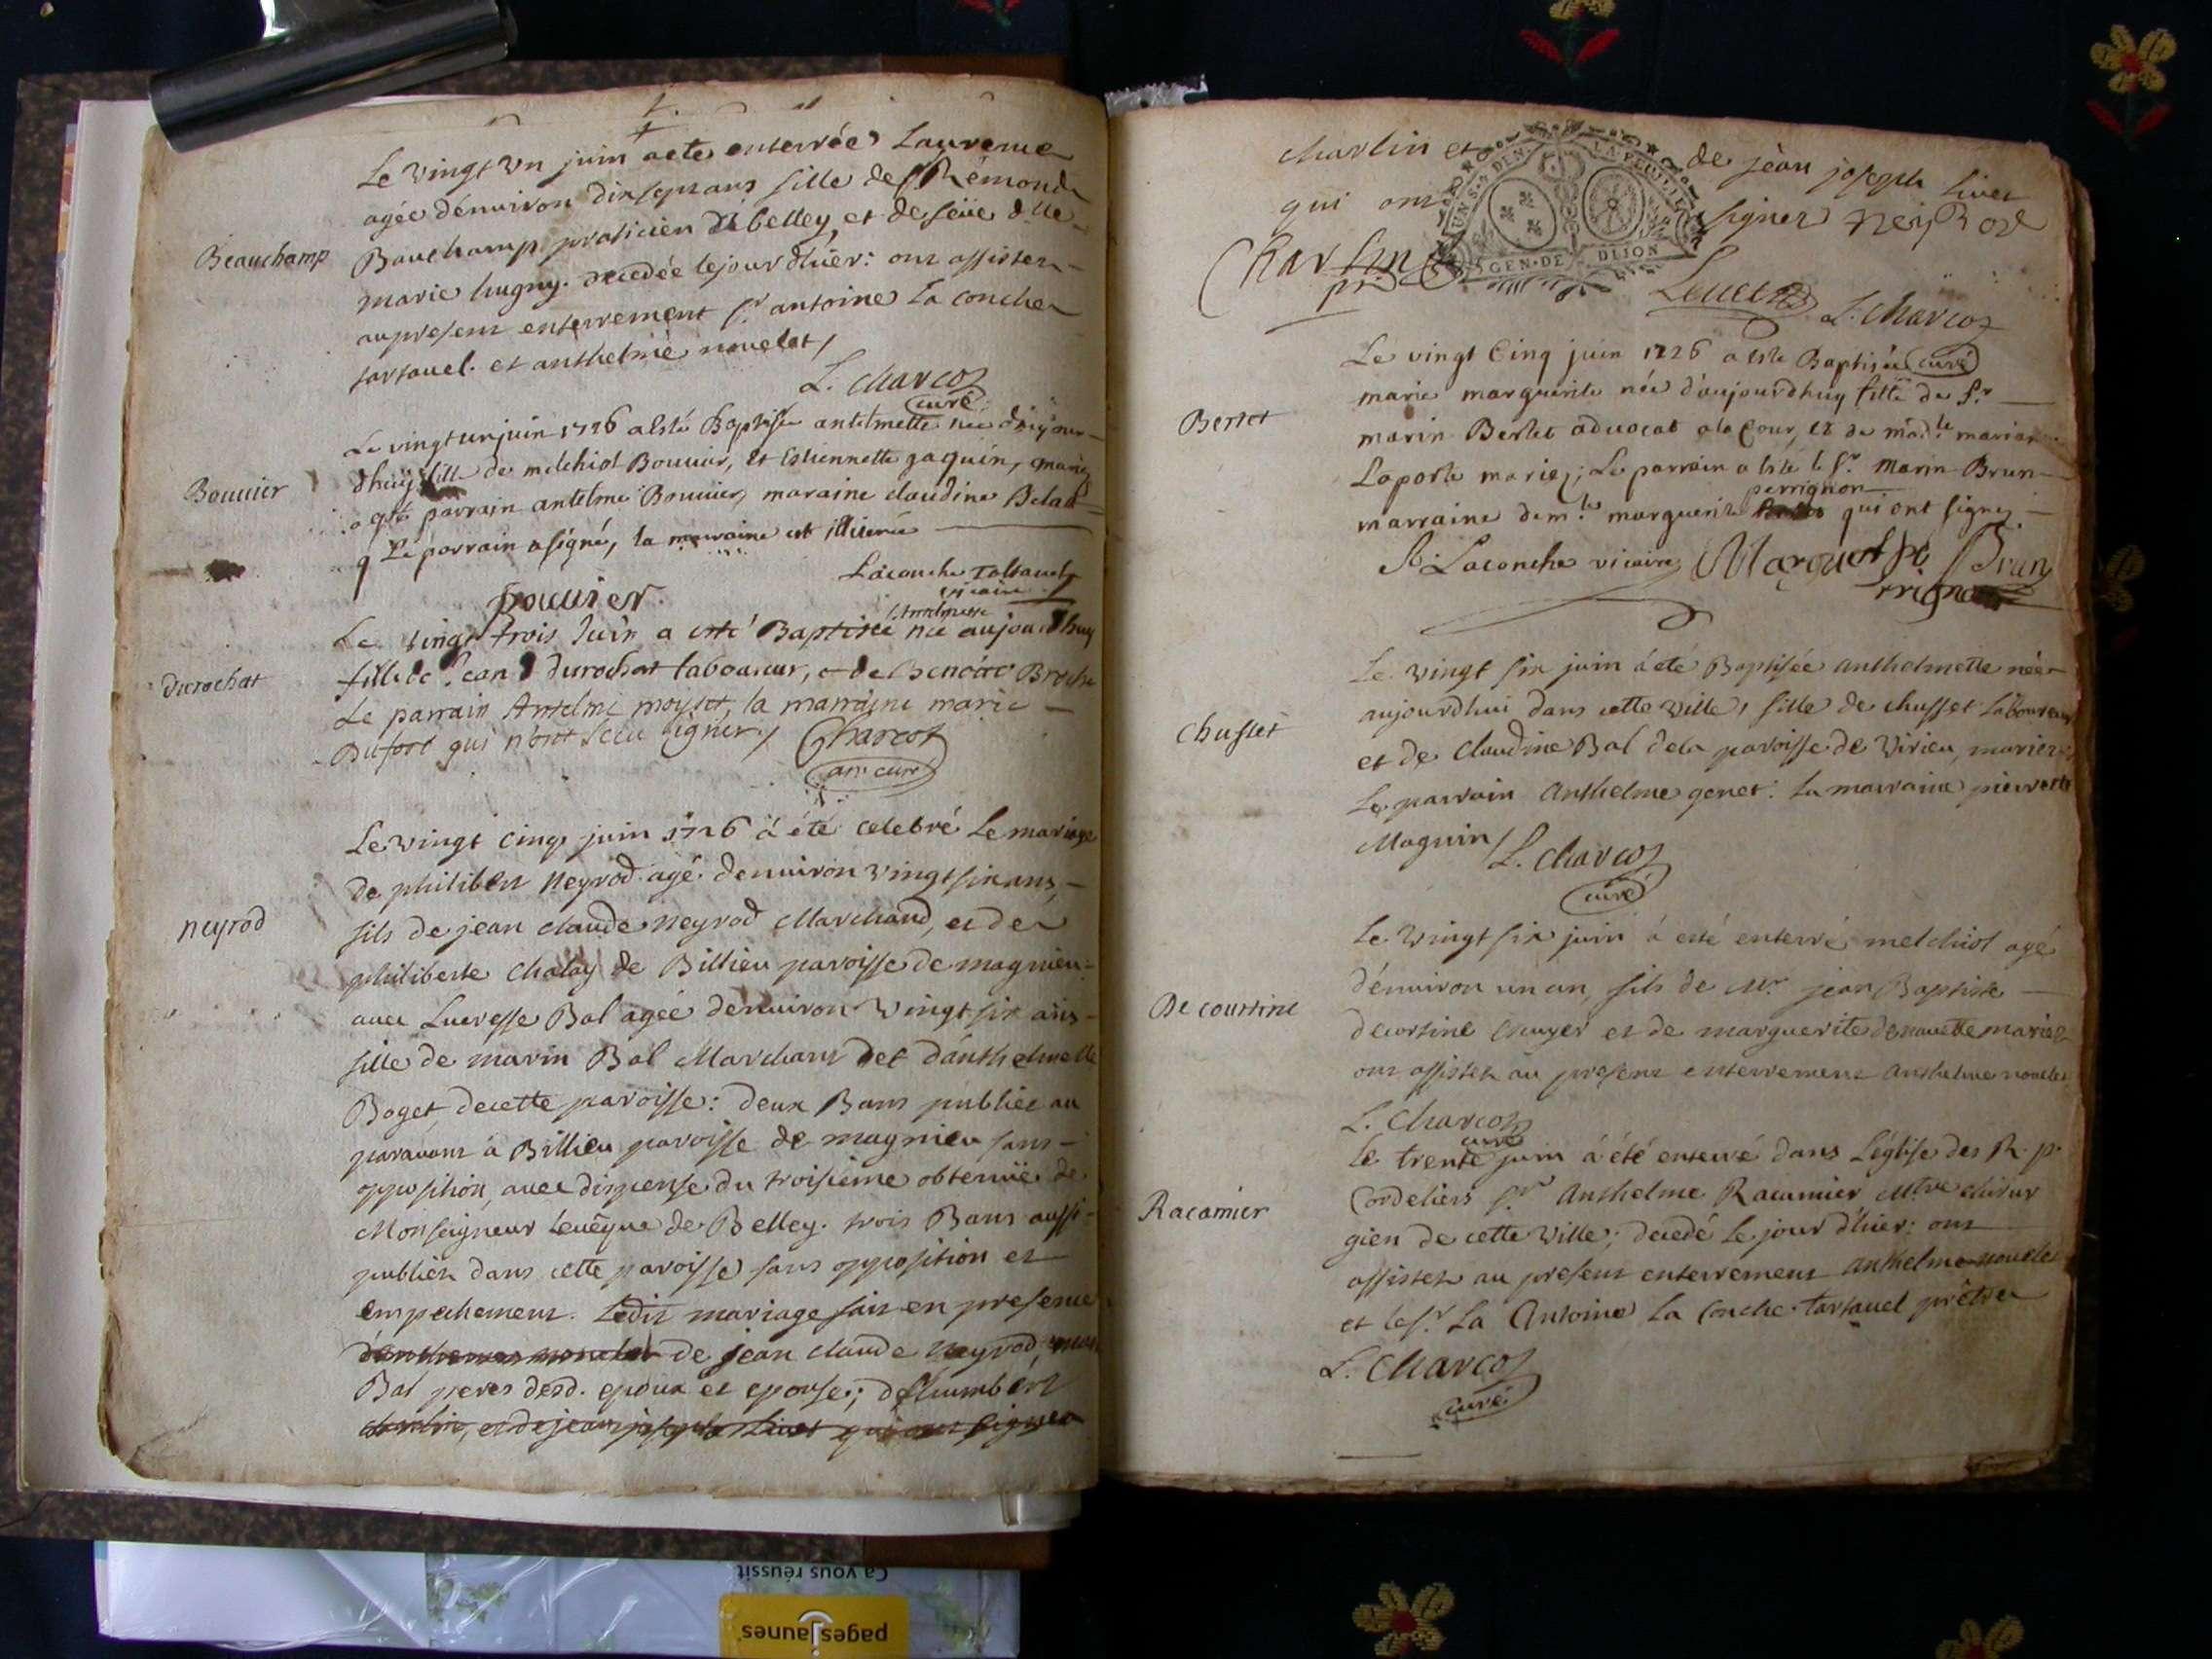 Le vingt un juin a eté enterrée Laurence
agée dénuiron dix sept ans fille de Sr Rémond
Beauchamp
Bauchamp praticien de belley, et de feüe dlle
marie hugny. decedée le jour d'hier: ont assisten
au present enterrement Sr antoine la conche
tartauel. et anthelme nouelet /
L. charcot
curé
Le vingt un juin 1726 a esté Baptisée antelmette née daujour
Bouuier
dhuy fille de melchiol Bouuier, et Estiennette gaguin, mariez
a esté parrain antelme Bouuier, maraine claudine
Le parrain a signé, la marraine est illiterée
Laconche Tartauel
vicaire
bouuier
Antelmette
Le vingt trois Juin a esté Baptisée née aujourdhuy
Durochat
fille de Jean durochat laboureur, et de Benoite Broche
Le parrain Antelme moiset, la marraine marie
Dufort qui n'ont sceu signer /
Charcot
anc curé
Le vingt cinq juin 1726 à été celebré le mariage
de philibert Neyrod agé denuiron vingt six ans,
neyrod
fils de jean claude neyrod Marchand, et de
philiberte chaley de Billieu paroisse de magnieu
auec Lucresse Bal agée denuiron vingt six ans
fille de marin Bal Marchant et d'anthelmette
Boget, de cette paroisse: deux Bans publiez au
parauant à Billieu paroisse de magnieu sans
opposition, auec dispense du troisieme obtenuë de
Monseigneur leuêque de Belley. trois Bans aussi
publiez dans cette paroisse sans opposition et
empechement. Ledit mariage fait en presence
de jean claude neyrod,
Bal peres desd. epoux et epouse; d'humbert
charlin, et de jean joseph liuet qui ont signer
charlin et de jean joseph liuet
qui ont signer neyRod
UNS. 4 DEN. LA FEUILLE
GEN. DE DIJON
Charlin
Leuet
L. charcot
curé
Le vingt Cinq juin 1726 a esté Baptisée
marie marguerite née d'aujourdhuy fille de Sr
Bertet
marin Bertet aduocat a la Cour, et de madlle
Laporte mariez; Le parrain a esté le Sr. Marin Brun
perrignon
marraine demlle marguerite qui ont signez
Laconche vicaire
Brun
Le vingt six juin à été Baptisée anthelmette née
aujourdhui dans cette ville, fille de chusset Laboureur
Chusset
et de claudine Bal de la paroisse de Virieu, mariez
Le parrain Anthelme genet: la marraine pierrette
Maguin / L. charcot
curé
Le vingt six juin à esté enterré melchiol agé
dénuiron un an, fils de Mr. jean Baptiste
De courtine
decortine ecuyer et de marguerite mariez
ont assistez au present enterrement anthelme nouelet
L. Charcot
curé
Le trente juin à été enterré dans L'église des R. p.
Cordeliers Sr. Anthelme Racamier Mtre chirur
Racamier
gien de cette ville; decedé le jour d'hier: ont
assistez au present enterrement anthelme nouelet
et le Sr. La Antoine La Conche tartauel prêtre
L. Charcot
curé
Ça vous réussit
pagesJaunes